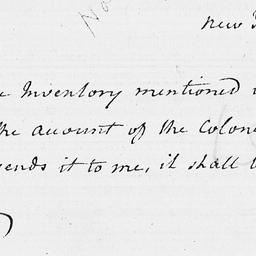 No
New
Inventory mentioned
the account of the Colone
sends it to me, it shall